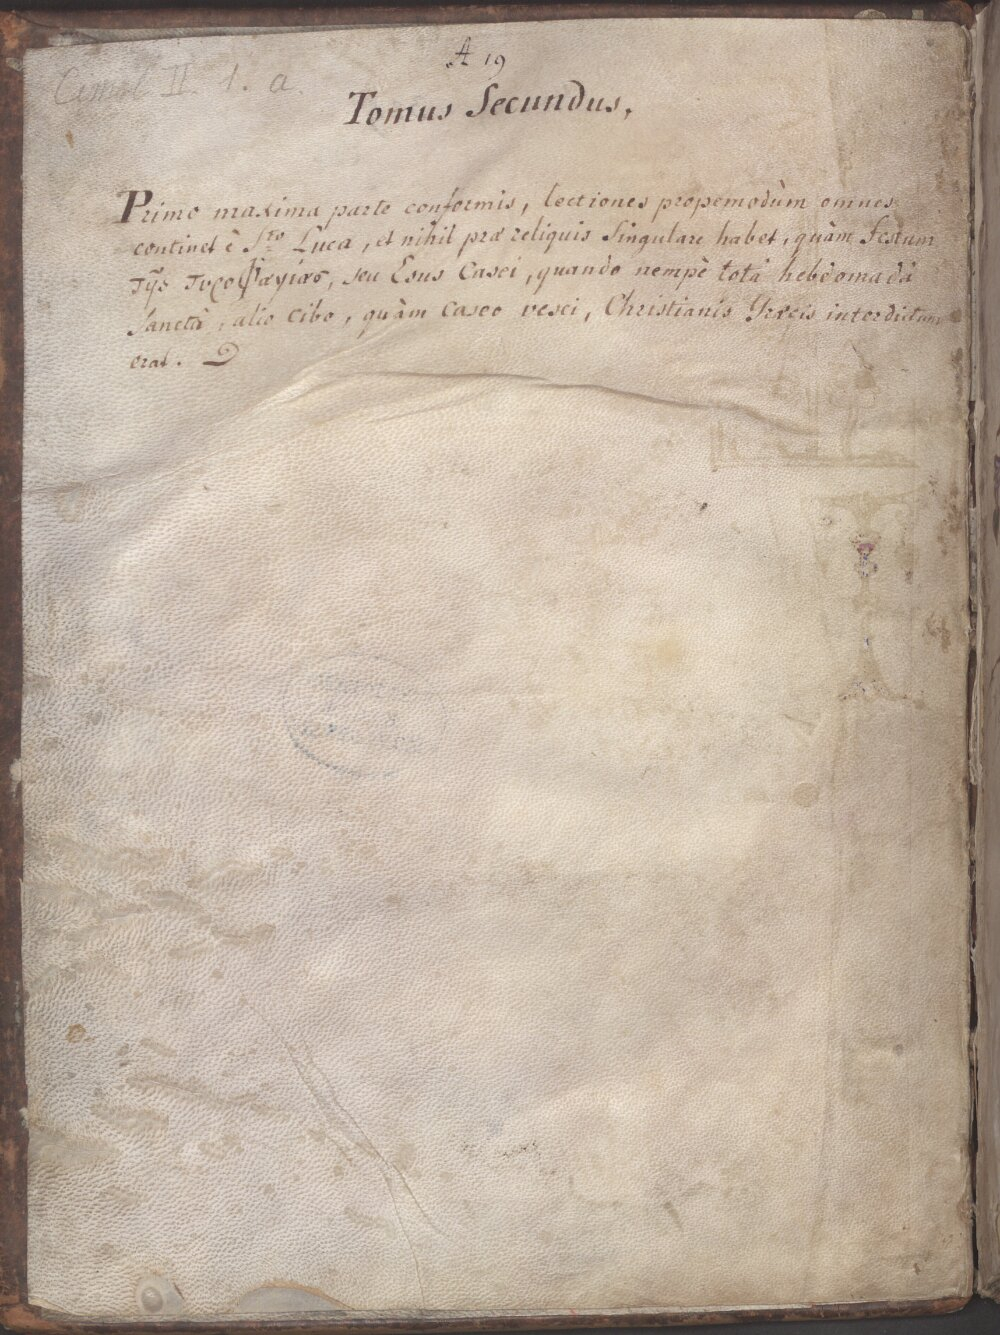 A 19
Cimel II. 1. a.
Tomus Secundus.
Primo maxima parte conformis, lectiones propemodùm omnes
continet è Sto Luca, et nihil præ reliquis singulare habet, quàm Festum
τῆς τυροφαγίας, seu Esus Casei, quando nempè totâ hebdomadâ
sanctâ, alio cibo, quàm caseo vesci, Christianis Græcis interdictum
erat.